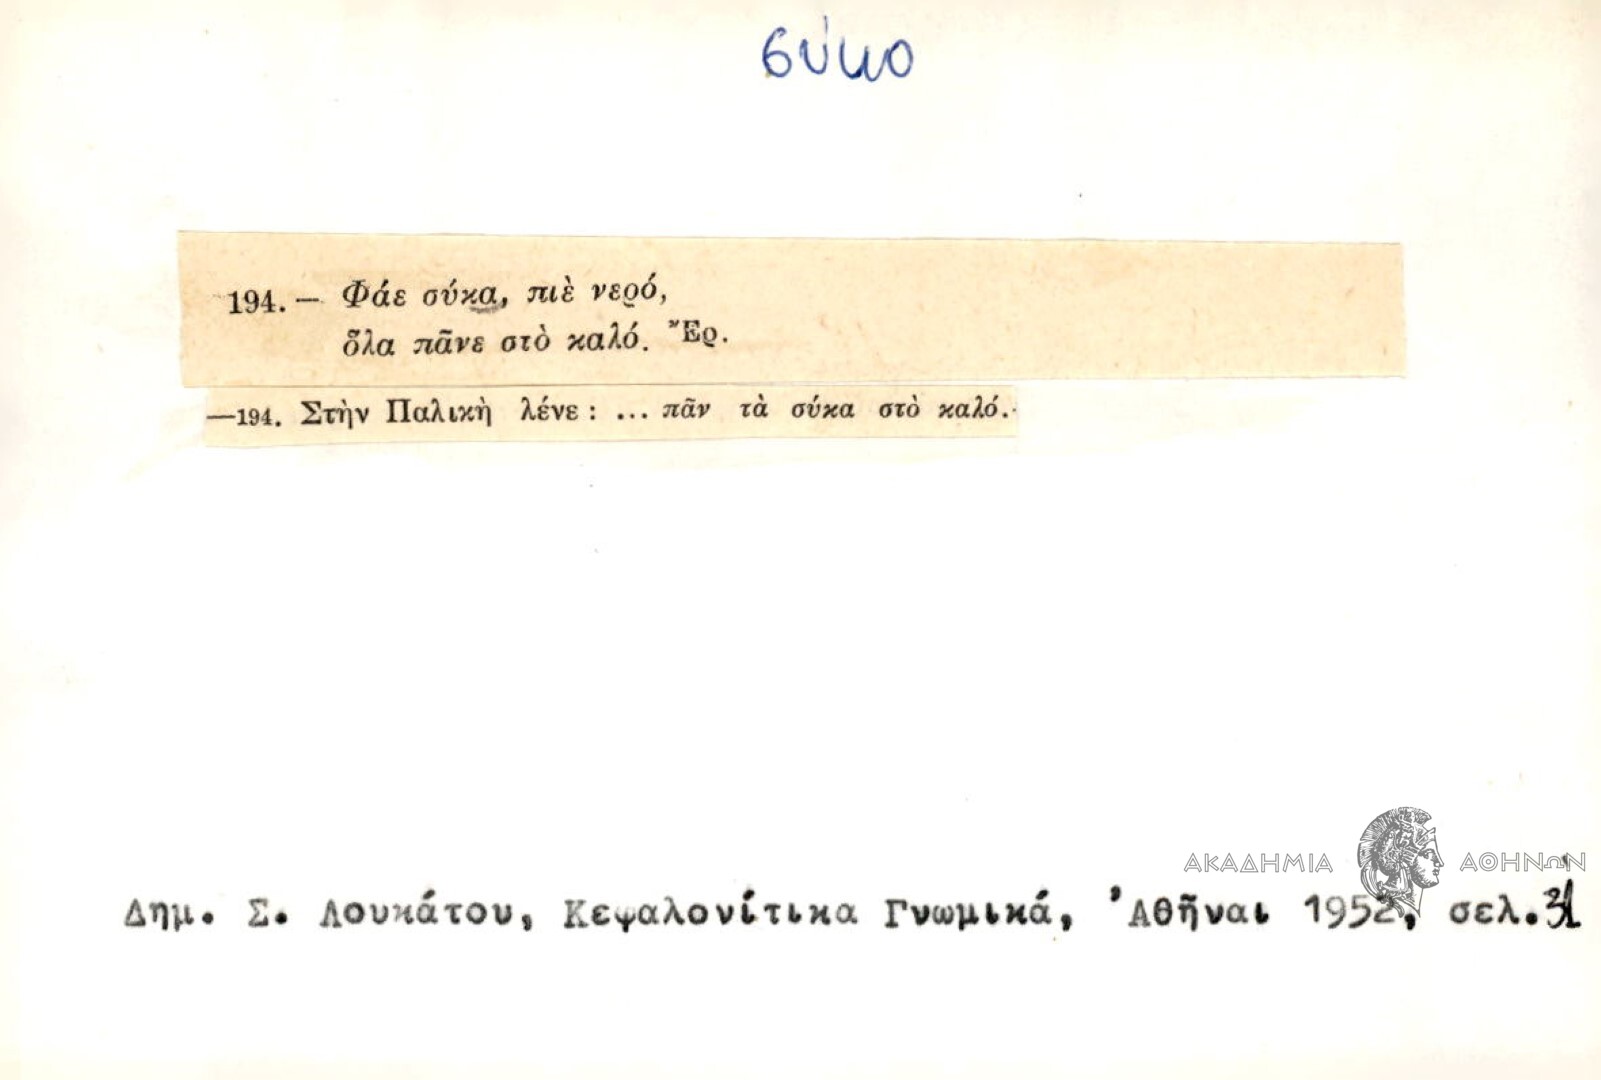 σύκο
194.— Φάε σύκα, πιὲ νερό,
ὅλα πᾶνε στὸ καλό. Ἔρ.
—194. Στὴν Παλικὴ λένε: ... πᾶν τὰ σύκα στὸ καλό.
ΑΚΑΔΗΜΙΑ ΑΘΗΝΩΝ
Δημ. Σ. Λουκάτου, Κεφαλονίτικα Γνωμικά, Ἀθῆναι 1952, σελ. 31